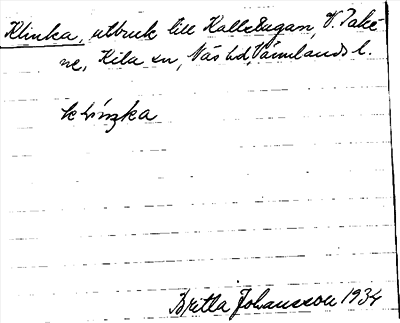 Klinka, utbruk till Kalleskagan, V. Takene, Kila sn, Näs hd, Värmlands l.
klíŋka
Britta Johansson 1934